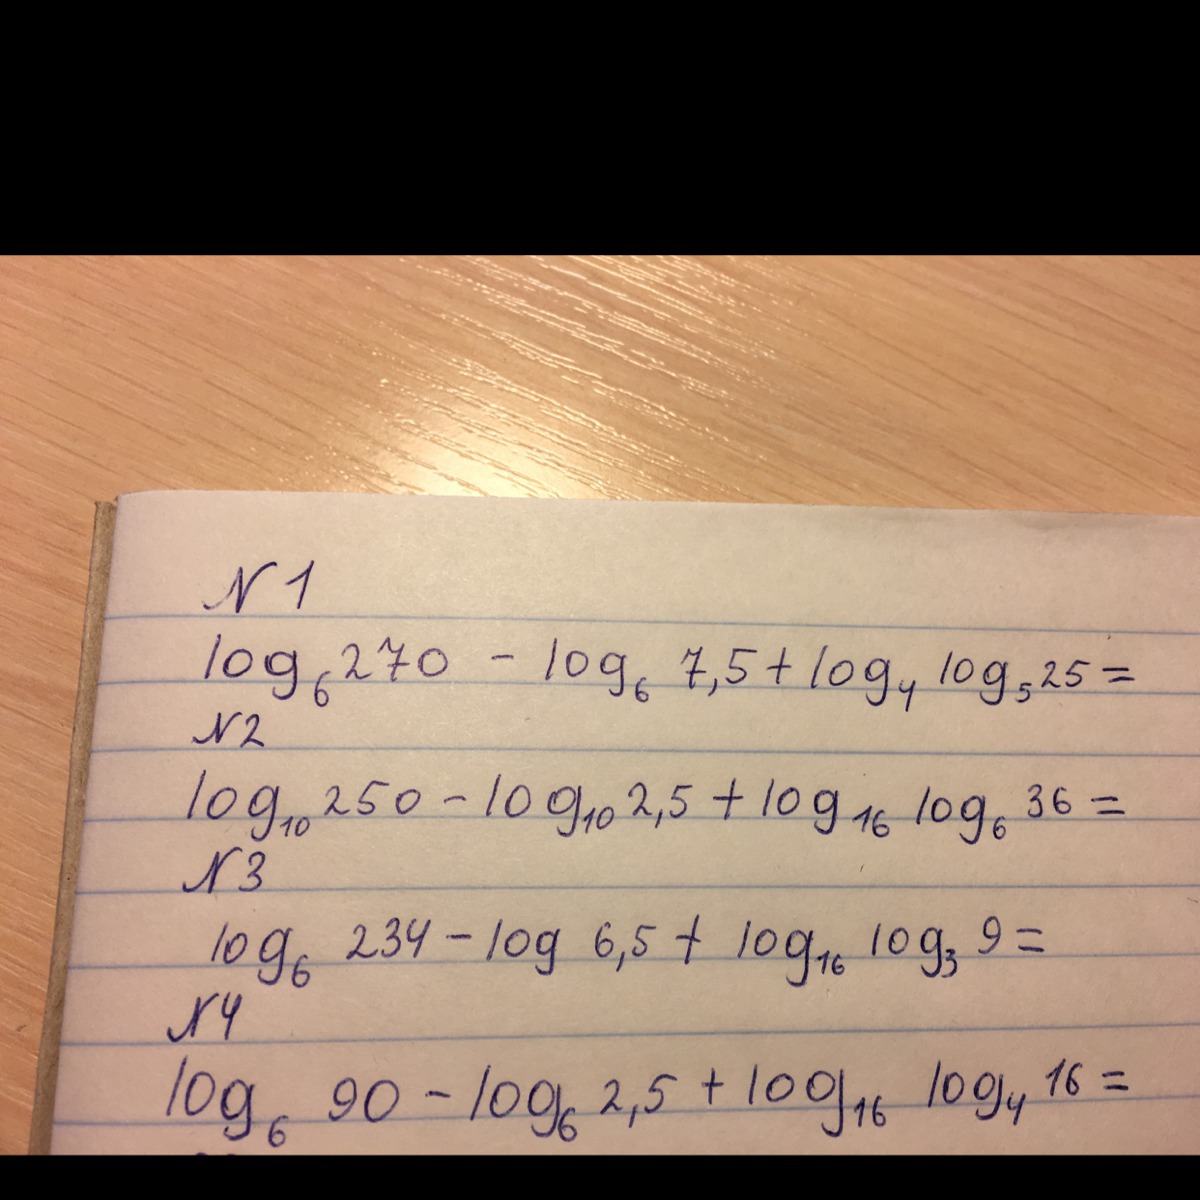 N1
log₆270 - log₆ 7,5 + log₄ log₅25 =
N2
log₁₀250 - log₁₀2,5 + log₁₆ log₆ 36 =
N3
log₆ 234 - log 6,5 + log₁₆ log₃ 9 =
N4
log₆ 90 - log₆ 2,5 + log₁₆ log₄ 16 =